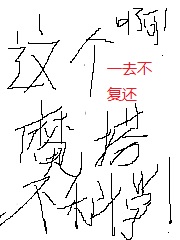 这个啊!
一去不
复还
搭
不科学!